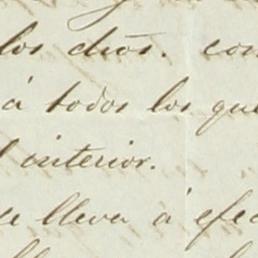 los dhōs. con
á todos los que
l interior.
se lleva á efec